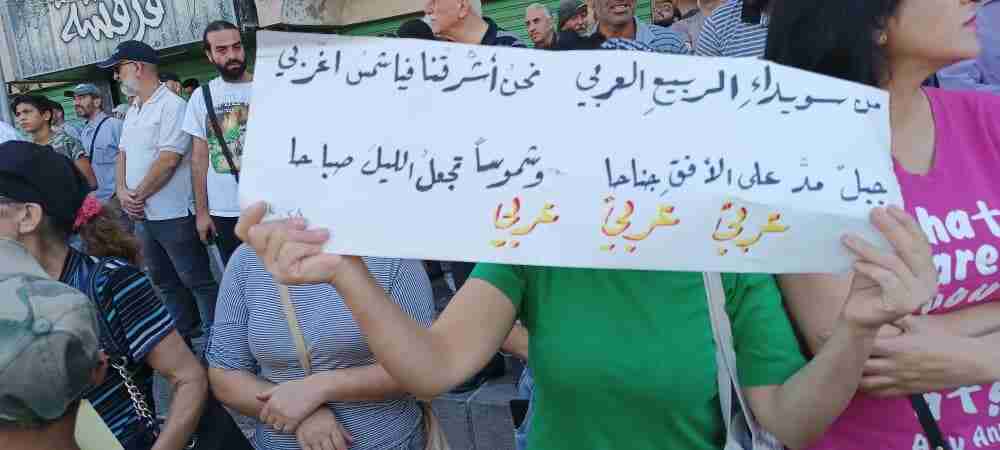 قرقشة
من سويداءِ الربيعِ العربي نحنُ أشْرقنا فيا شمسُ اغربي
جبلٌ مدَّ على الأفقِ جناحا وشموساً تجعلُ الليلَ صباحا
عربيٌ عربيٌ عربيٌ
hat
are